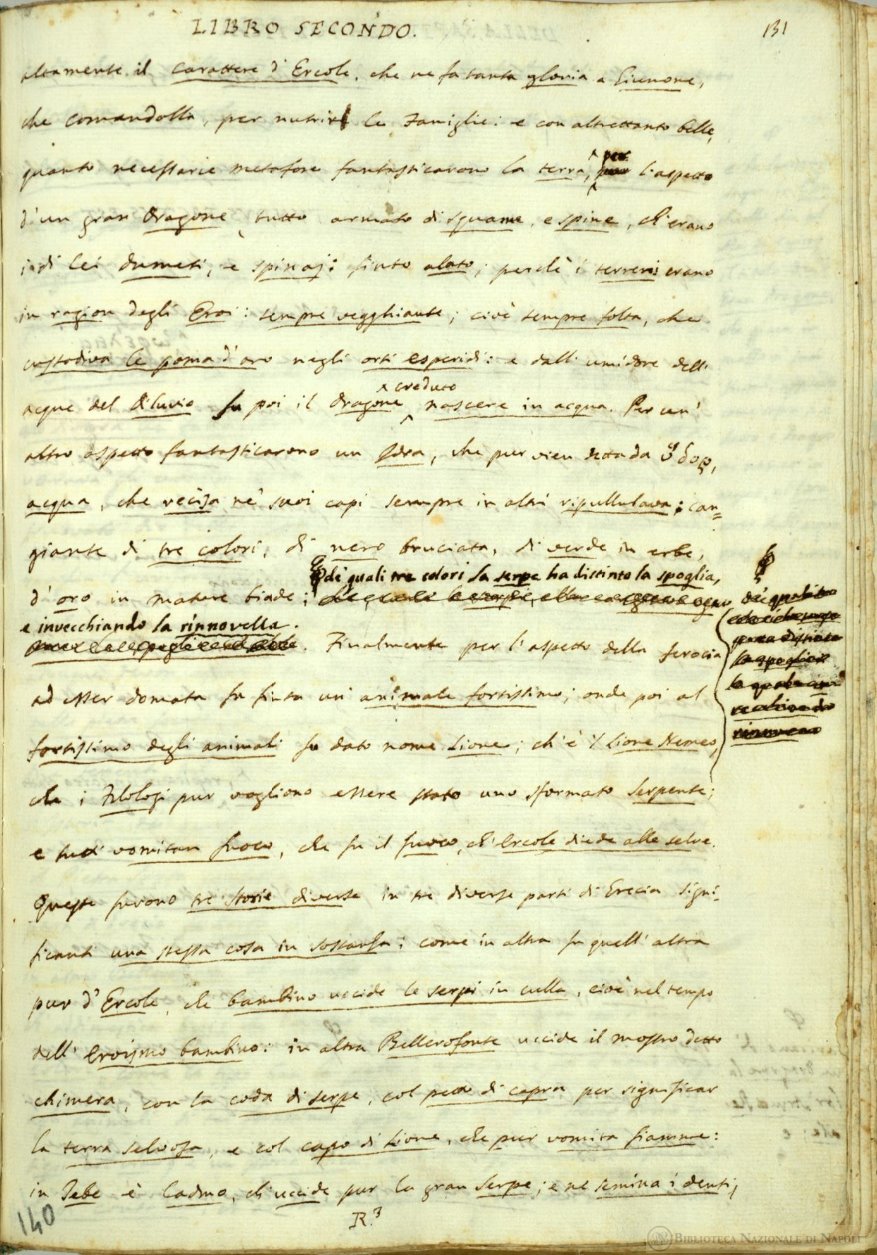 LIBRO SECONDO.
131
altamente il carattere d'Ercole, che ne fa tanta gloria a Giunone,
che comandolla, per nutrire le Famiglie: e con altrettanto belle,
quanto necessarie metafore fantasticarono la terra, per l'aspetto
d'un gran Dragone, tutto armato di squame, e spine, ch'erano
i di lei dumeti, e spinaj: finto alato; perchè i terreni erano
in ragion degli Eroi: sempre vegghiante; cioè sempre folta, che
custodiva le poma d'oro negli orti esperidi: e dall'umidore dell'
acque del Diluvio fu poi il dragone creduto nascere in acqua. Per un'
altro aspetto fantasticarono un Idra, che pur vien detta da ὕδωρ,
acqua, che recisa ne' suoi capi sempre in altri ripullulava: can-
giante di tre colori, di nero bruciata, di verde in erbe,
d'oro in mature biade; de' quali tre colori la serpe ha distinto la spoglia,
e invecchiando la rinnovella. Finalmente per l'aspetto della ferocia
ad esser domata fu finta un'animale fortissimo; onde poi al
fortissimo degli animali fu dato nome Lione; ch'è 'l Lione Nemeo,
che i Filologi pur vogliono essere stato uno sformato Serpente;
e tutti vomitan fuoco, che fu il fuoco, ch'Ercole diede alle selve.
Queste furono tre storie diverse in tre diverse parti di Grecia signi-
ficanti una stessa cosa in sostanza: come in altra fu quell'altra
pur d'Ercole, che bambino uccide le serpi in culla, cioè nel tempo
dell'Eroismo bambino: in altra Bellerofonte uccide il mostro detto
chimera, con la coda di serpe, col petto di capra per significar
la terra selvosa, e col capo di Lione, che pur vomita fiamme:
in Tebe è Cadmo, ch'uccide pur la gran Serpe; e ne semina i denti;
R.3
140
BIBLIOTECA NAZIONALE DI NAPOLI